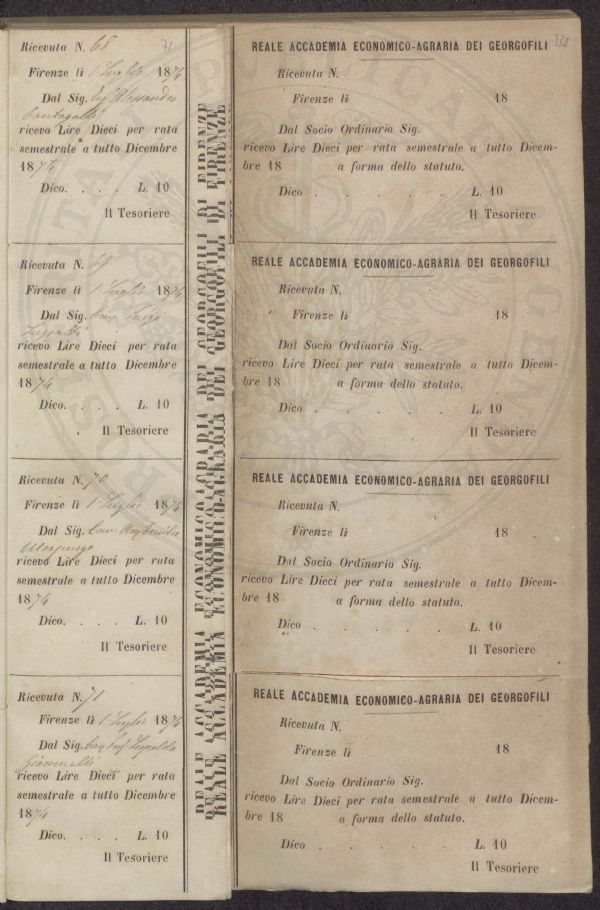 Ricevuta N. 68 71
Firenze li 1 Luglio 1874
Dal Sig. Alessandro
ricevo Lire Dieci per rata
semestrale a tutto Dicembre
1874
Dico. . . . L. 10
Il Tesoriere
Ricevuta N. 69
Firenze li 1 Luglio 1874
Dal Sig. Cav. Luigi
ricevo Lire Dieci per rata
semestrale a tutto Dicembre
1874
Dico. . . . L. 10
Il Tesoriere
Ricevuta N. 70
Firenze li 1 Luglio 1874
Dal Sig. Cav.
ricevo Lire Dieci per rata
semestrale a tutto Dicembre
1874
Dico. . . . L. 10
Il Tesoriere
Ricevuta N. 71
Firenze li 1 Luglio 1874
Dal Sig. Leopoldo
ricevo Lire Dieci per rata
semestrale a tutto Dicembre
1874
Dico. . . . L. 10
Il Tesoriere
REALE ACCADEMIA ECONOMICO-AGRARIA DEI GEORGOFILI DI FIRENZE
REALE ACCADEMIA ECONOMICO-AGRARIA DEI GEORGOFILI
Ricevuta N.
Firenze li 18
Dal Socio Ordinario Sig.
ricevo Lire Dieci per rata semestrale a tutto Dicem-
bre 18 a forma dello statuto.
Dico . . . . . L. 10
Il Tesoriere
REALE ACCADEMIA ECONOMICO-AGRARIA DEI GEORGOFILI
Ricevuta N.
Firenze li 18
Dal Socio Ordinario Sig.
ricevo Lire Dieci per rata semestrale a tutto Dicem-
bre 18 a forma dello statuto.
Dico . . . . . L. 10
Il Tesoriere
REALE ACCADEMIA ECONOMICO-AGRARIA DEI GEORGOFILI
Ricevuta N.
Firenze li 18
Dal Socio Ordinario Sig.
ricevo Lire Dieci per rata semestrale a tutto Dicem-
bre 18 a forma dello statuto.
Dico . . . . . L. 10
Il Tesoriere
REALE ACCADEMIA ECONOMICO-AGRARIA DEI GEORGOFILI
Ricevuta N.
Firenze li 18
Dal Socio Ordinario Sig.
ricevo Lire Dieci per rata semestrale a tutto Dicem-
bre 18 a forma dello statuto.
Dico . . . . . L. 10
Il Tesoriere